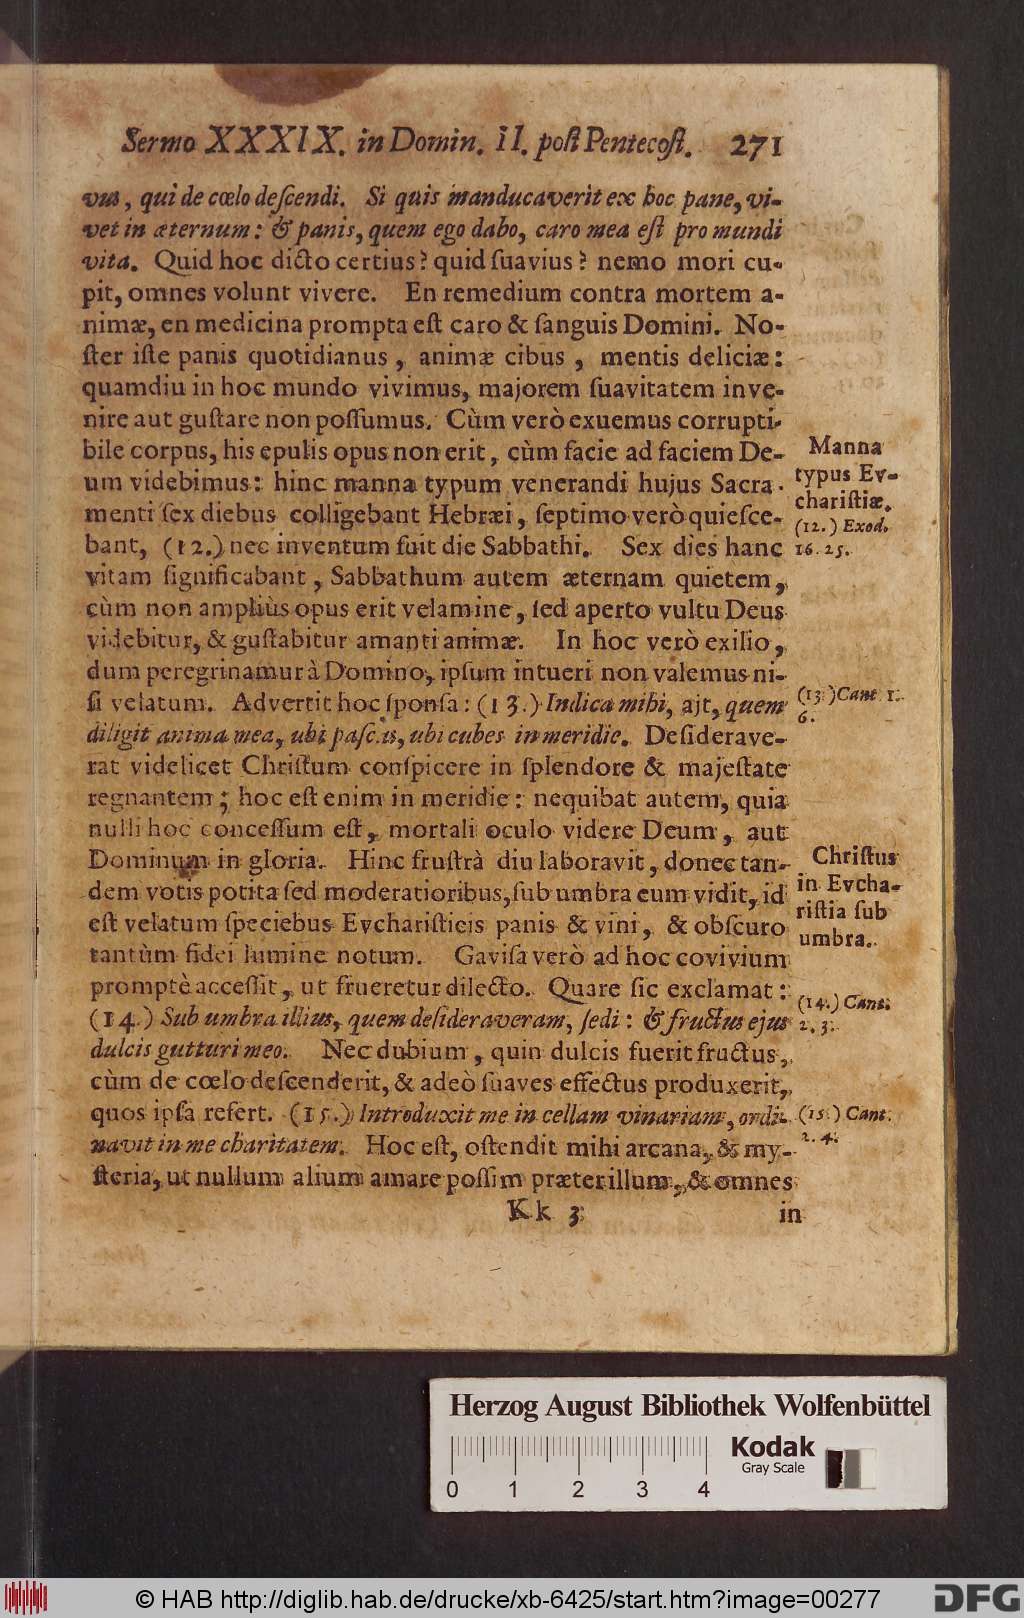 Sermo XXXIX. in Domin. II. poſt Pentecoſt. 271
vus, qui de cœlo deſcendi. Si quis manducaverit ex hoc pane, vi-
vet in æternum: & panis, quem ego dabo, caro mea eſt pro mundi
vita. Quid hoc dicto certius? quid ſuavius? nemo mori cu-
pit, omnes volunt vivere. En remedium contra mortem a-
nimæ, en medicina prompta eſt caro & ſanguis Domini. No-
ſter iſte panis quotidianus, animæ cibus, mentis deliciæ:
quamdiu in hoc mundo vivimus, majorem ſuavitatem inve-
nire aut guſtare non poſſumus. Cùm verò exuemus corrupti-
bile corpus, his epulis opus non erit, cùm facie ad faciem De-
um videbimus: hinc manna typum venerandi hujus Sacra-
menti ſex diebus colligebant Hebræi, ſeptimo verò quieſce-
bant, (12.) nec inventum fuit die Sabbathi. Sex dies hanc
vitam ſignificabant, Sabbathum autem æternam quietem,
cùm non ampliùs opus erit velamine, ſed aperto vultu Deus
videbitur, & guſtabitur amanti animæ. In hoc verò exilio,
dum peregrinamur à Domino, ipſum intueri non valemus ni-
ſi velatum. Advertit hoc ſponſa: (13.) Indica mihi, ajt, quem
diligit anima mea, ubi paſcis, ubi cubes in meridie. Deſiderave-
rat videlicet Chriſtum conſpicere in ſplendore & majeſtate
regnantem; hoc eſt enim in meridie: nequibat autem, quia
nulli hoc conceſſum eſt, mortali oculo videre Deum, aut
Dominum in gloria. Hinc fruſtrà diu laboravit, donec tan-
dem votis potita ſed moderatioribus, ſub umbra eum vidit, id
eſt velatum ſpeciebus Evchariſticis panis & vini, & obſcuro
tantùm fidei lumine notum. Gaviſa verò ad hoc covivium
promptè acceſſit, ut frueretur dilecto. Quare ſic exclamat:
(14.) Sub umbra illius, quem deſideraveram, ſedi: & fructus ejus
dulcis gutturi meo. Nec dubium, quin dulcis fuerit fructus,
cùm de cœlo deſcenderit, & adeò ſuaves effectus produxerit,
quos ipſa refert. (15.) Introduxit me in cellam vinariam, ordi-
navit in me charitatem. Hoc eſt, oſtendit mihi arcana, & my-
ſteria, ut nullum alium amare poſſim præter illum, & omnes
Kk 3 in
Manna
typus Ev-
chariſtiæ.
(12.) Exod.
16. 25.
(13.) Cant 1.
6.
Chriſtus
in Evcha-
riſtia ſub
umbra.
(14.) Cant.
2. 3.
(15.) Cant.
2. 4.
Herzog August Bibliothek Wolfenbüttel
Kodak
Gray Scale
0 1 2 3 4
© HAB http://diglib.hab.de/drucke/xb-6425/start.htm?image=00277
DFG